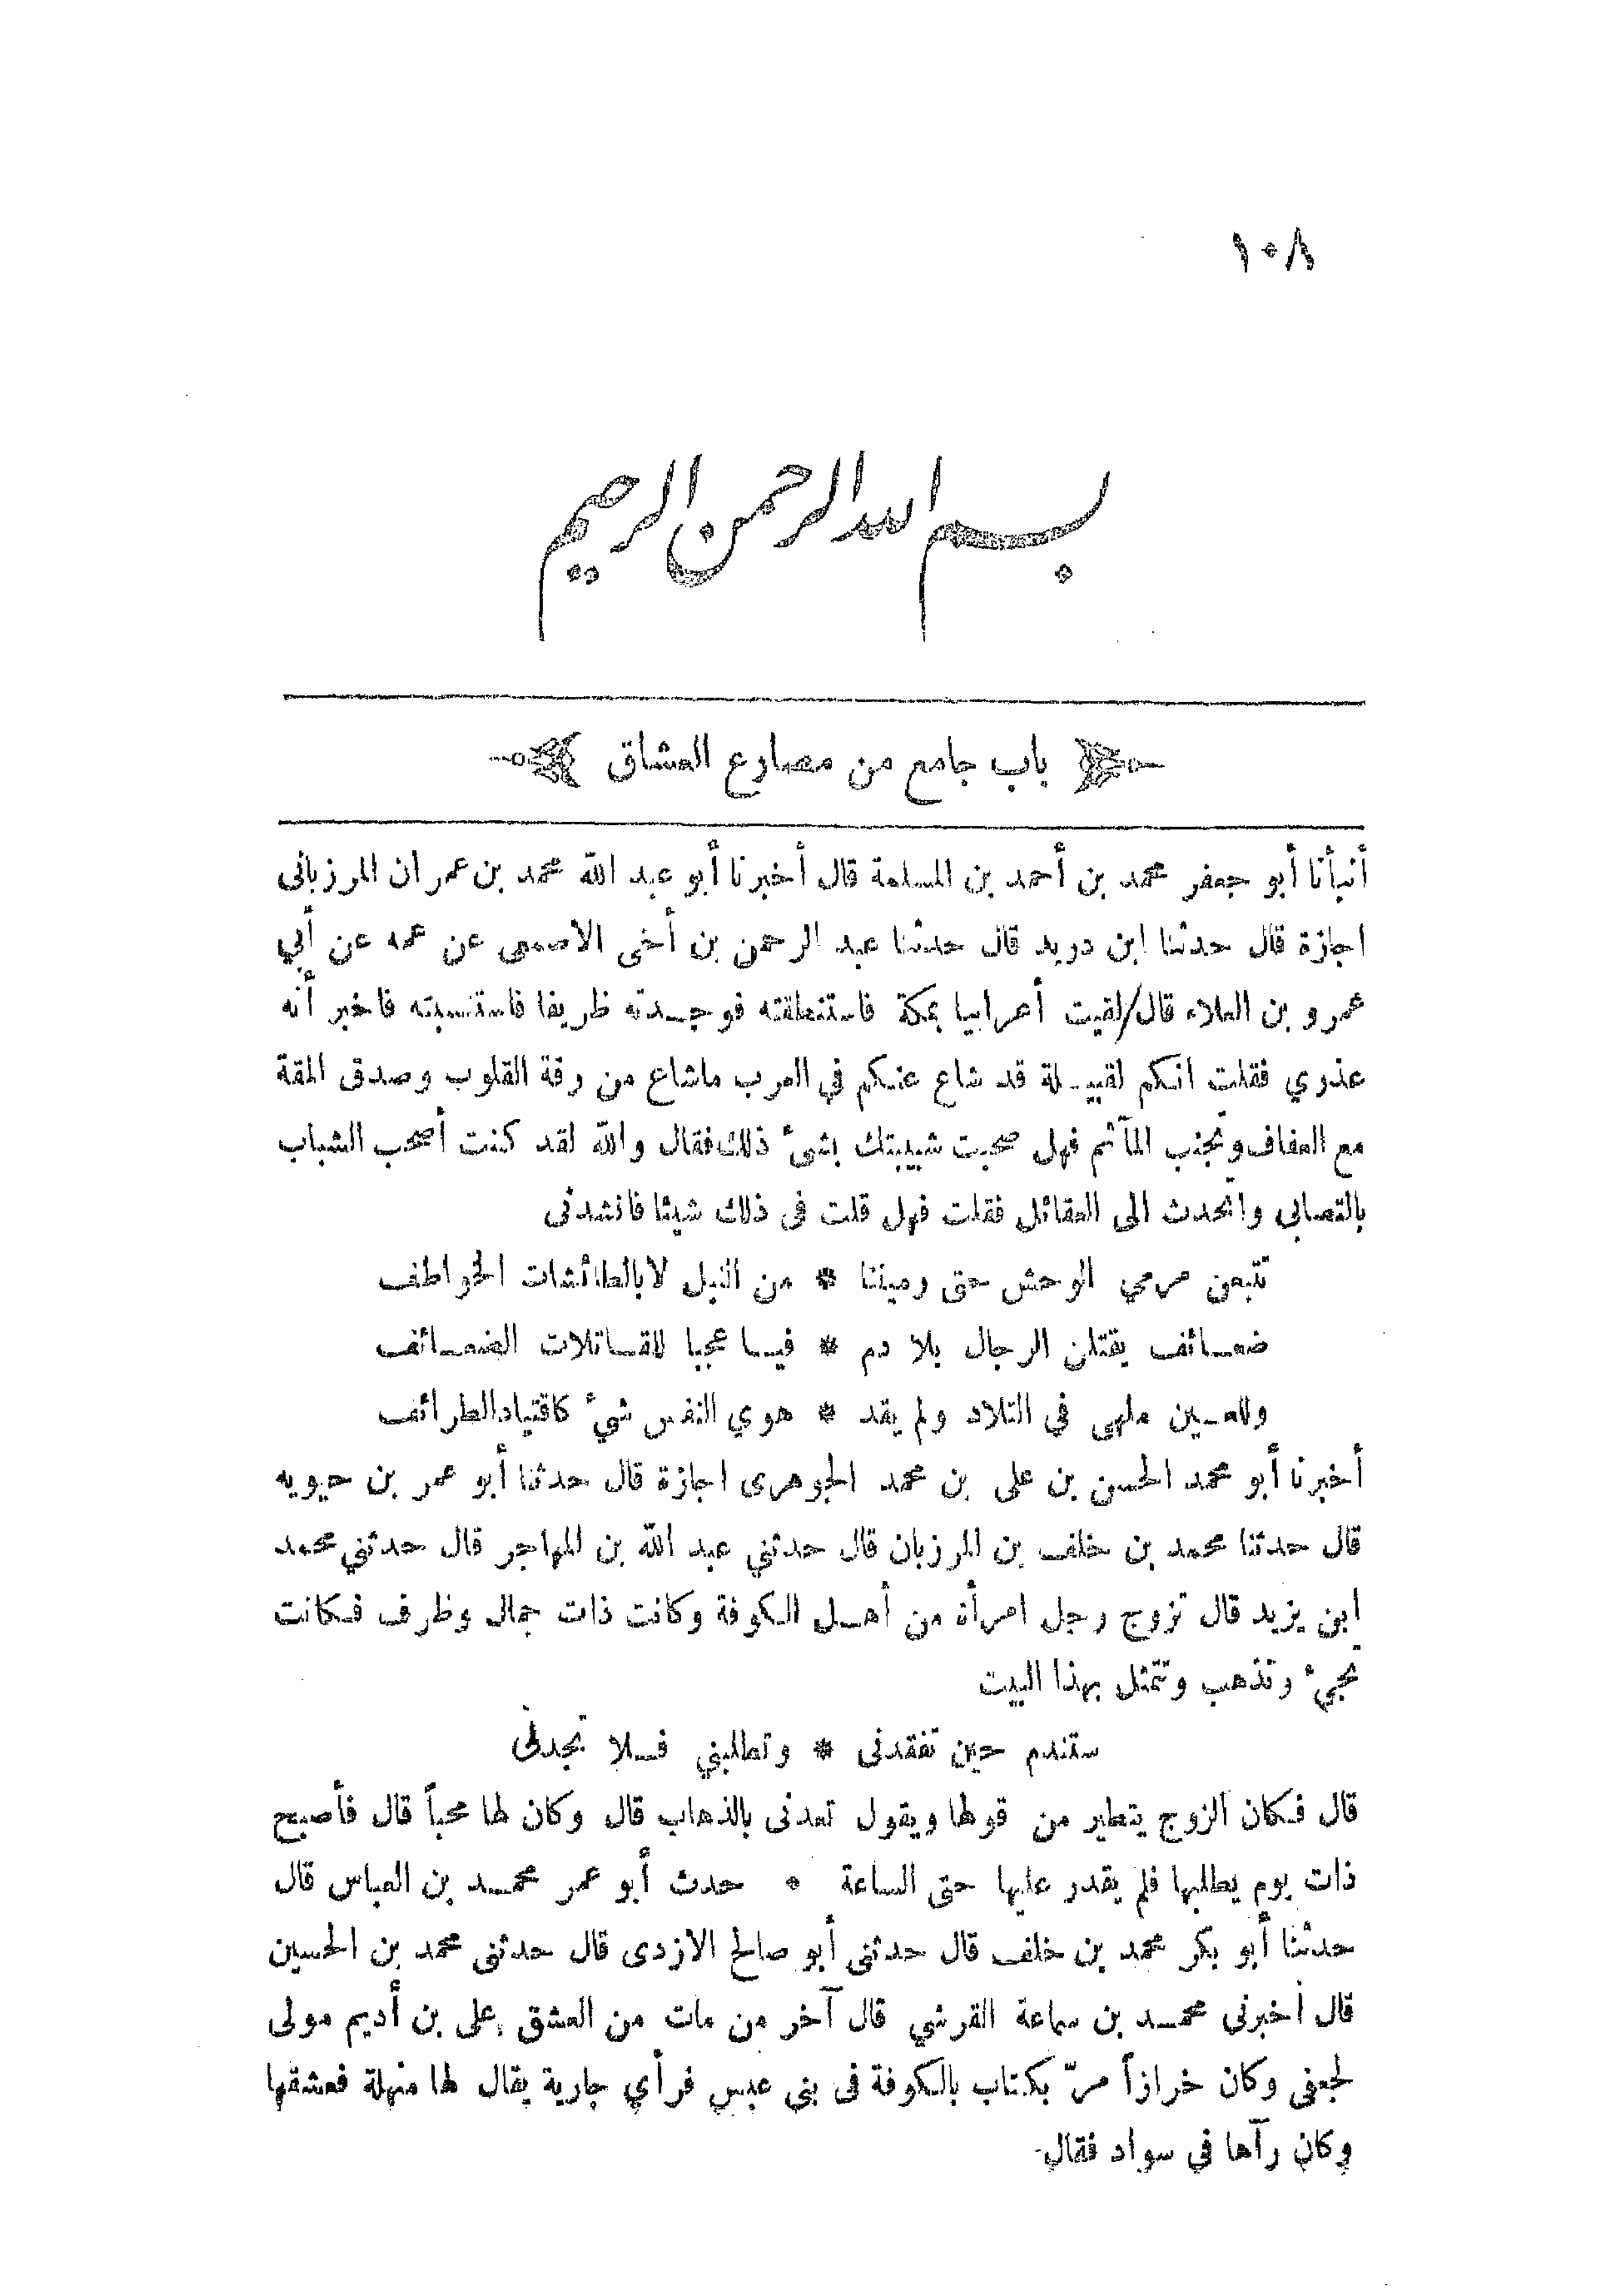 ١٠٨
بسم الله الرحمن الرحيم
باب جامع من مصارع العشاق
أنبأنا أبو جعفر محمد بن أحمد بن المسلمة قال أخبرنا أبو عبد الله محمد بن عمران المرزبانى
اجازة قال حدثنا ابن دريد قال حدثنا عبد الرحمن بن أخى الاصمعى عن عمه عن أبي
عمرو بن العلاء قال/لقيت أعرابيا بمكة فاستنطقته فوجدته ظريفا فاستنسبته فاخبر أنه
عذري فقلت انكم لقبيلة قد شاع عنكم في العرب ماشاع من رقة القلوب وصدق المقة
مع العفاف وتجنب المآثم فهل صحبت شبيبتك بشئ ذلك فقال والله لقد كنت أصحب الشباب
بالتصابى واتحدث الى العقائل فقلت فهل قلت فى ذلك شيئا فانشدنى
تتبعن مرمي الوحش حتى رميننا * من النبل لا بالطائشات الخواطف
ضعائف يقتلن الرجال بلا دم * فيا عجبا للقاتلات الضعائف
وللعين ملهى في التلاد ولم يقد * هوي النفس شئ كاقتياد الطرائف
أخبرنا أبو محمد الحسن بن على بن محمد الجوهرى اجازة قال حدثنا أبو عمر بن حيويه
قال حدثنا محمد بن خلف بن المرزبان قال حدثني عبد الله بن المهاجر قال حدثني محمد
ابن يزيد قال تزوج رجل امرأة من أهل الكوفة وكانت ذات جمال وظرف فكانت
تجئ وتذهب وتتمثل بهذا البيت
ستندم حين تفقدنى * وتطلبني فلا تجدنى
قال فكان الزوج يتطير من قولها ويقول تعدنى بالذهاب قال وكان لها محباً قال فأصبح
ذات يوم يطلبها فلم يقدر عليها حتى الساعة * حدث أبو عمر محمد بن العباس قال
حدثنا أبو بكر محمد بن خلف قال حدثنى أبو صالح الازدى قال حدثنى محمد بن الحسين
قال أخبرنى محمد بن سماعة القرشي قال آخر من مات من العشق على بن أديم مولى
لجعفى وكان خرازاً مرّ بكتاب بالكوفة فى بنى عبس فرأي جارية يقال لها منهلة فعشقها
وكان رآها في سواد فقال